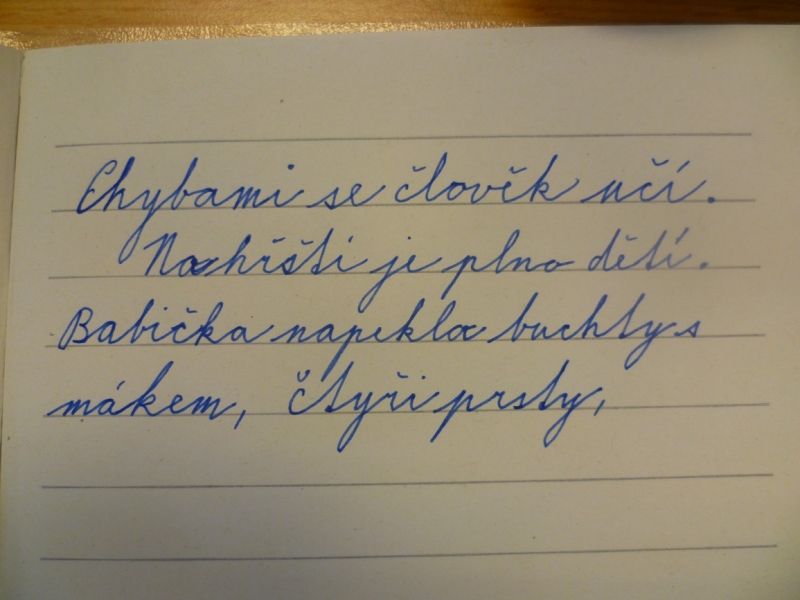 Chybami se člověk učí.
Na hřišti je plno dětí.
Babička napekla buchty s
mákem, čtyři prsty,